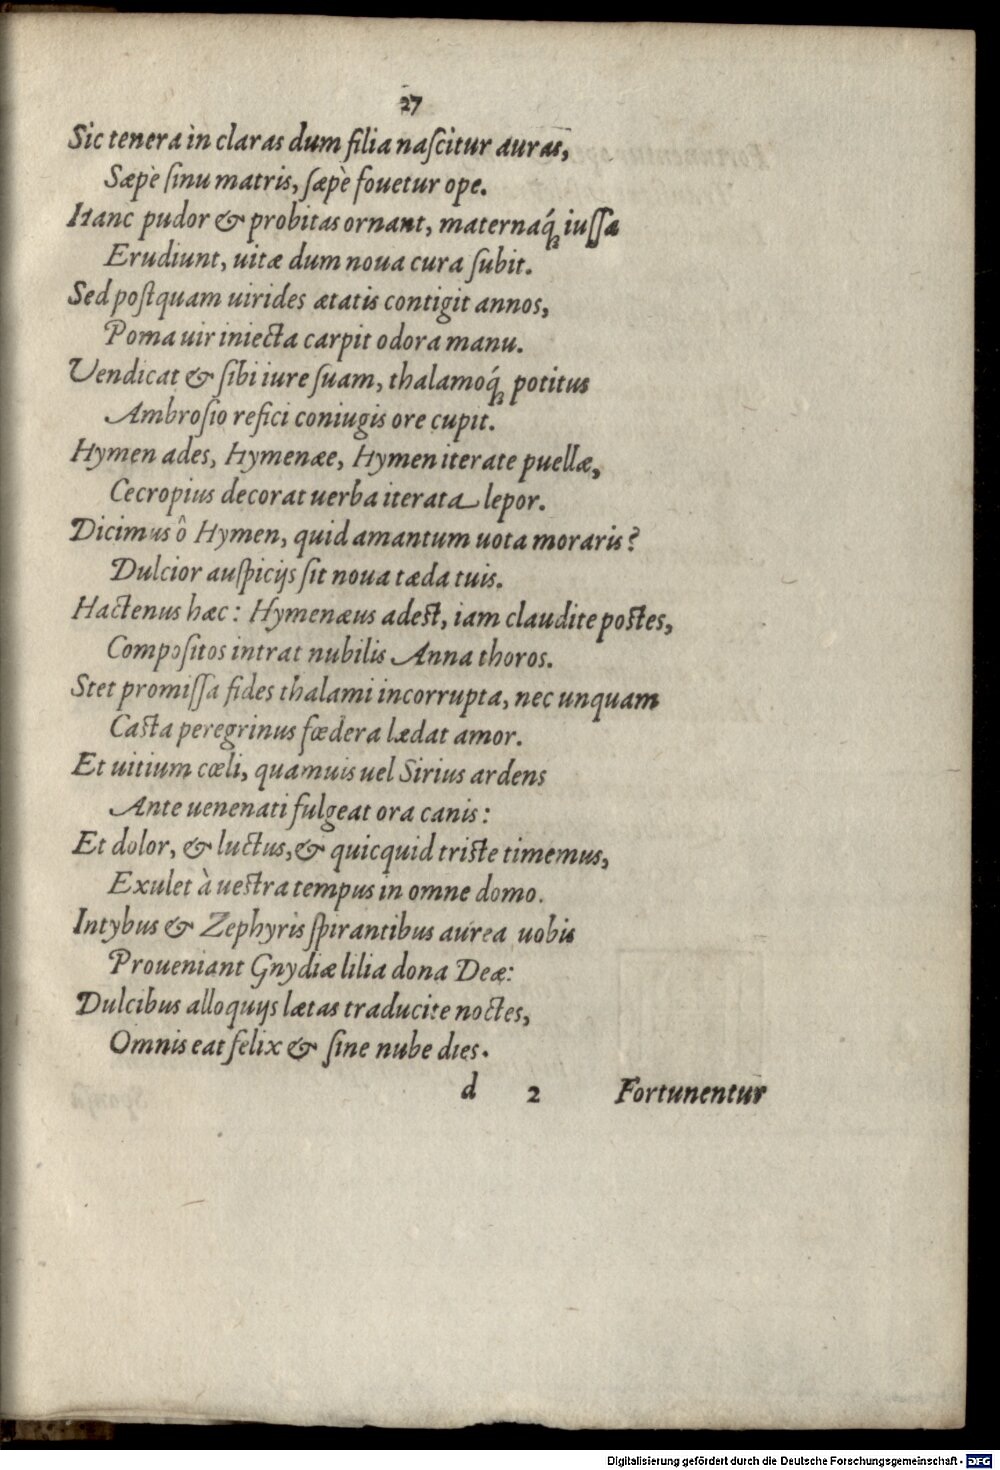 27
Sic tenera in claras dum filia naſcitur auras,
Sæpè ſinu matris, ſæpè fouetur ope.
Hanc pudor & probitas ornant, maternaq́; iuſſa
Erudiunt, uitæ dum noua cura ſubit.
Sed poſtquam uirides ætatis contigit annos,
Poma uir iniecta carpit odora manu.
Vendicat & ſibi iure ſuam, thalamoq́; potitus
Ambroſio refici coniugis ore cupit.
Hymen ades, Hymenæe, Hymen iterate puellæ,
Cecropius decorat uerba iterata lepor.
Dicimus ô Hymen, quid amantum uota moraris?
Dulcior auſpicijs ſit noua tæda tuis.
Hactenus hæc: Hymenæus adeſt, iam claudite poſtes,
Compoſitos intrat nubilis Anna thoros.
Stet promiſſa fides thalami incorrupta, nec unquam
Caſta peregrinus fœdera lædat amor.
Et uitium cœli, quamuis uel Sirius ardens
Ante uenenati fulgeat ora canis:
Et dolor, & luctus, & quicquid triſte timemus,
Exulet à ueſtra tempus in omne domo.
Intybus & Zephyris ſpirantibus aurea uobis
Proueniant Gnydiæ lilia dona Deæ:
Dulcibus alloquijs lætas traducite noctes,
Omnis eat felix & ſine nube dies.
d 2 Fortunentur
Digitalisierung gefördert durch die Deutsche Forschungsgemeinschaft - DFG